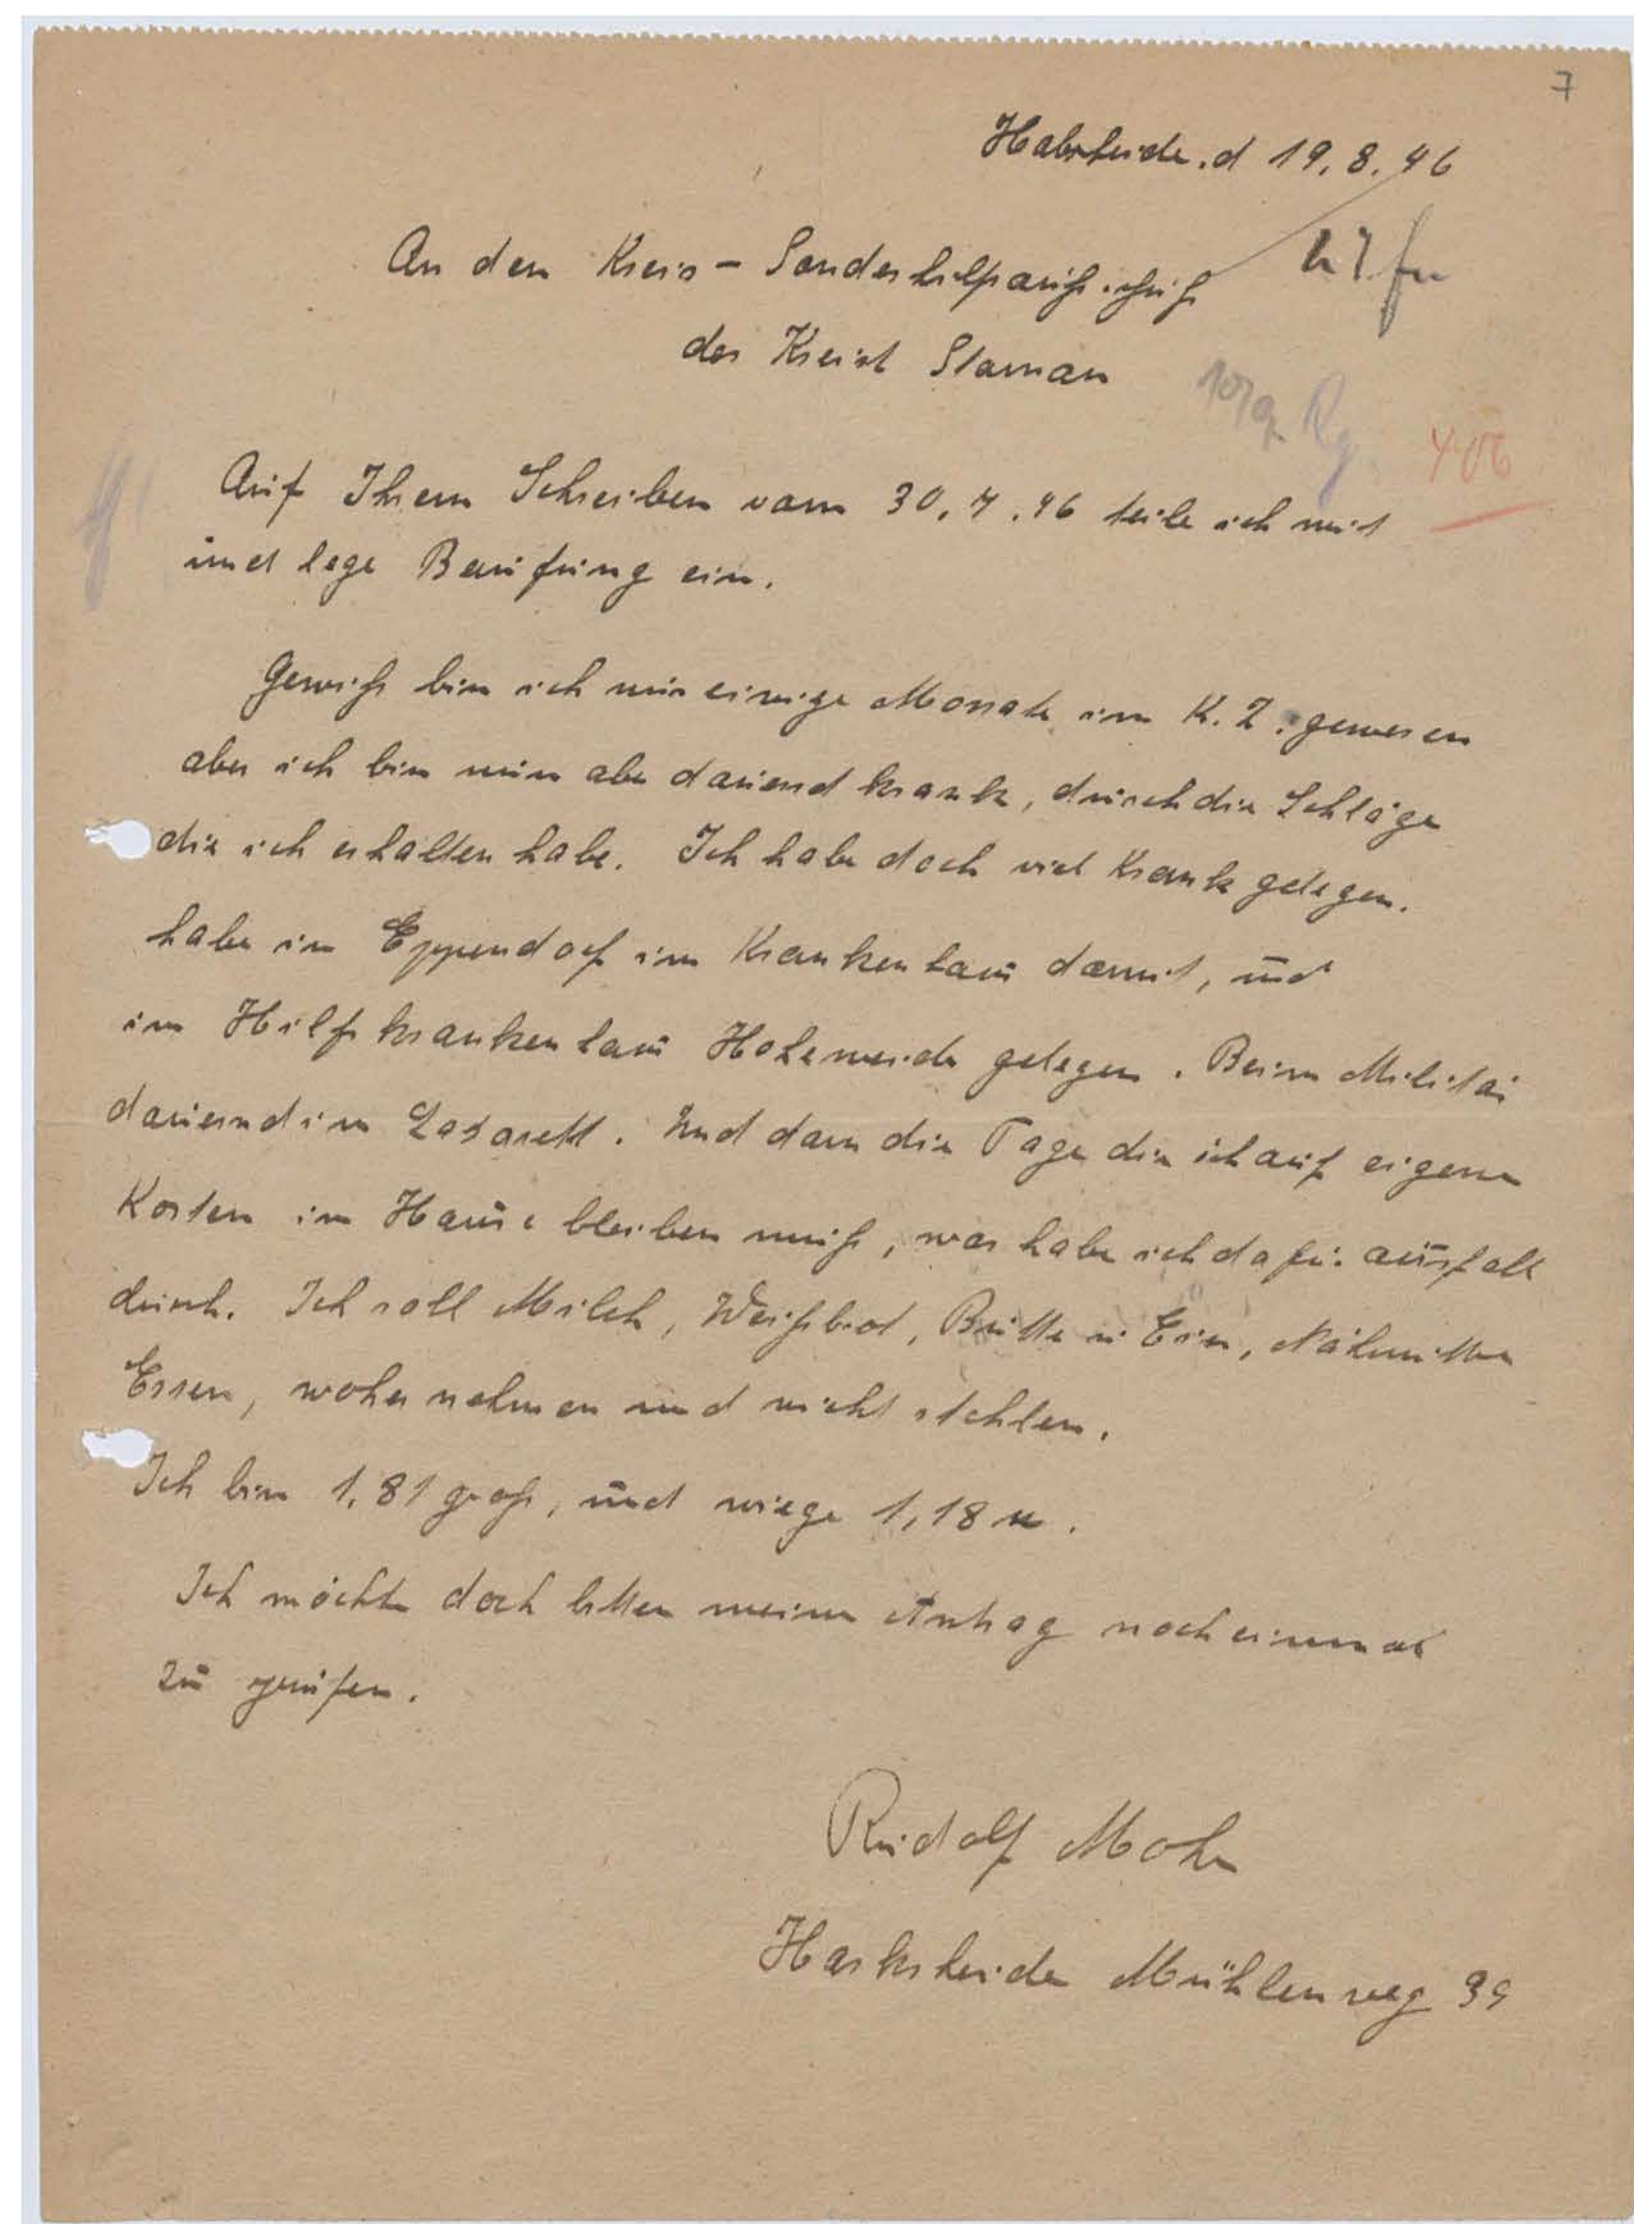 7
Habsheide, d 19. 8. 46
An den Kreis - Sonderhilfsausschuß
des Kreist Staman
406
Auf Ihrem Schreiben vom 30. 7. 46 teile ich mit
und lege Berufung ein.
Gewiß bin ich nur einige Monate im K. Z. gewesen
aber ich bin nun aber dauernd krank, durch die Schläge
die ich erhalten habe. Ich habe doch viel Krank gelegen.
habe in Eppendorf im Krankenhaus damit, und
im Hilfskrankenhaus Hoheweide gelegen. Beim Militär
dauernd im Lazarett. Und dann die Tage die ich auf eigene
Kosten im Hause bleiben muß, was habe ich dafür ausfall
durch. Ich soll Milch, Weißbrot, Butter u Eier, Nährmittel
Essen, woher nehmen und nicht stehlen.
Ich bin 1,81 groß, und wiege 1,18
Ich möchte doch bitten meinen Antrag noch einmal
zu prüfen.
Rudolf Mohr
Harksheide Mühlenweg 39